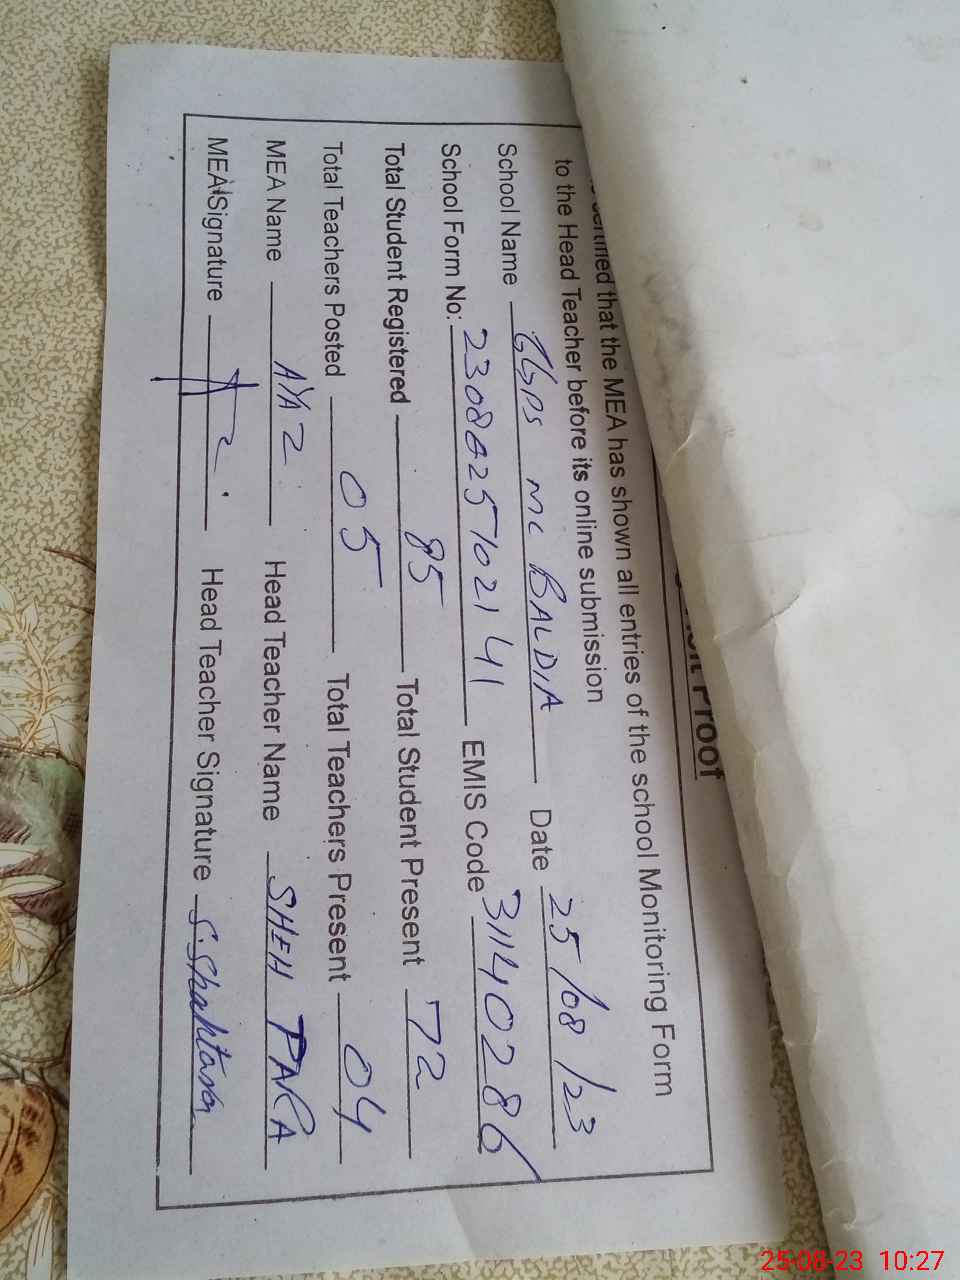 Proof
certified that the MEA has shown all entries of the school Monitoring Form
to the Head Teacher before its online submission
School Name GGPS MC BALDIA Date 25/08/23
School Form No: 2308257102141 EMIS Code 31140286
Total Student Registered 85 Total Student Present 72
Total Teachers Posted 05 Total Teachers Present 04
MEA Name AYAZ Head Teacher Name SHEH PARA
MEA Signature Head Teacher Signature
25-08-23 10:27